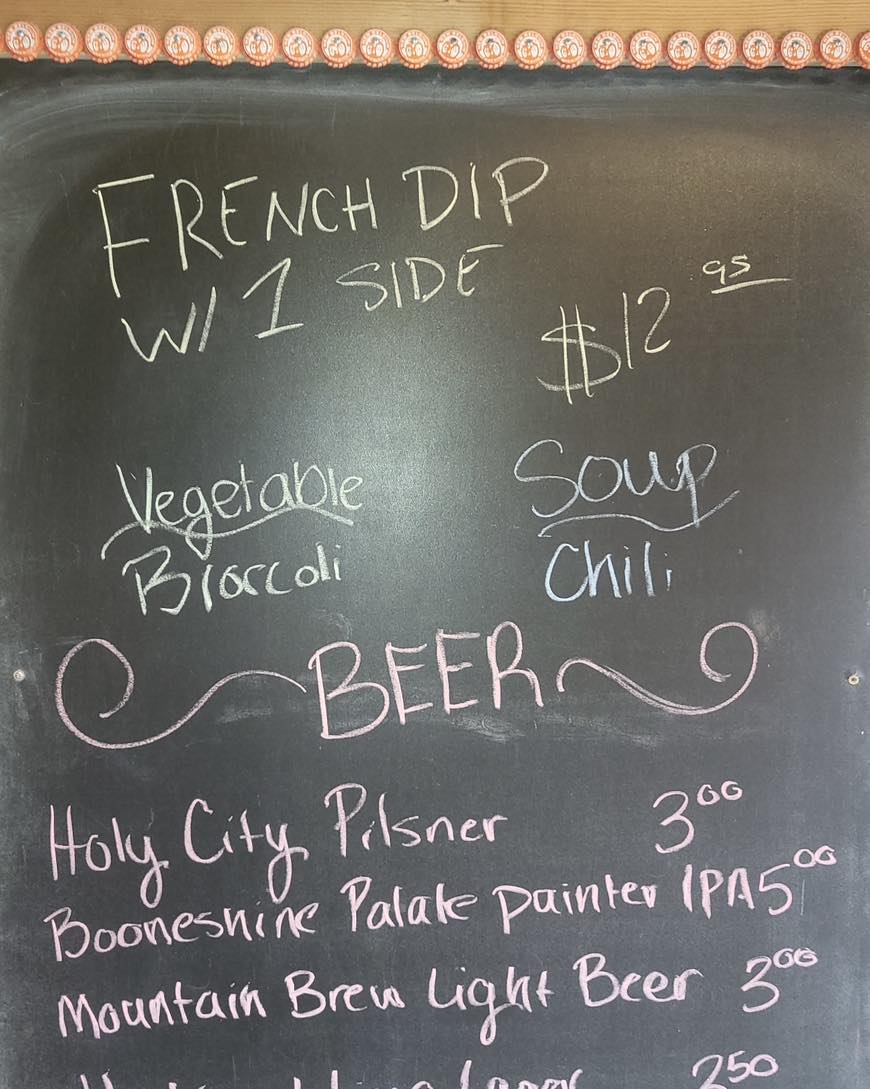 FRENCH DIP
W/ 1 SIDE
$12 95
Vegetable Soup
Broccoli Chili
BEER
Holy City Pilsner 3 00
Booneshine Palate Painter IPA 5 00
Mountain Brew Light Beer 3 00
250